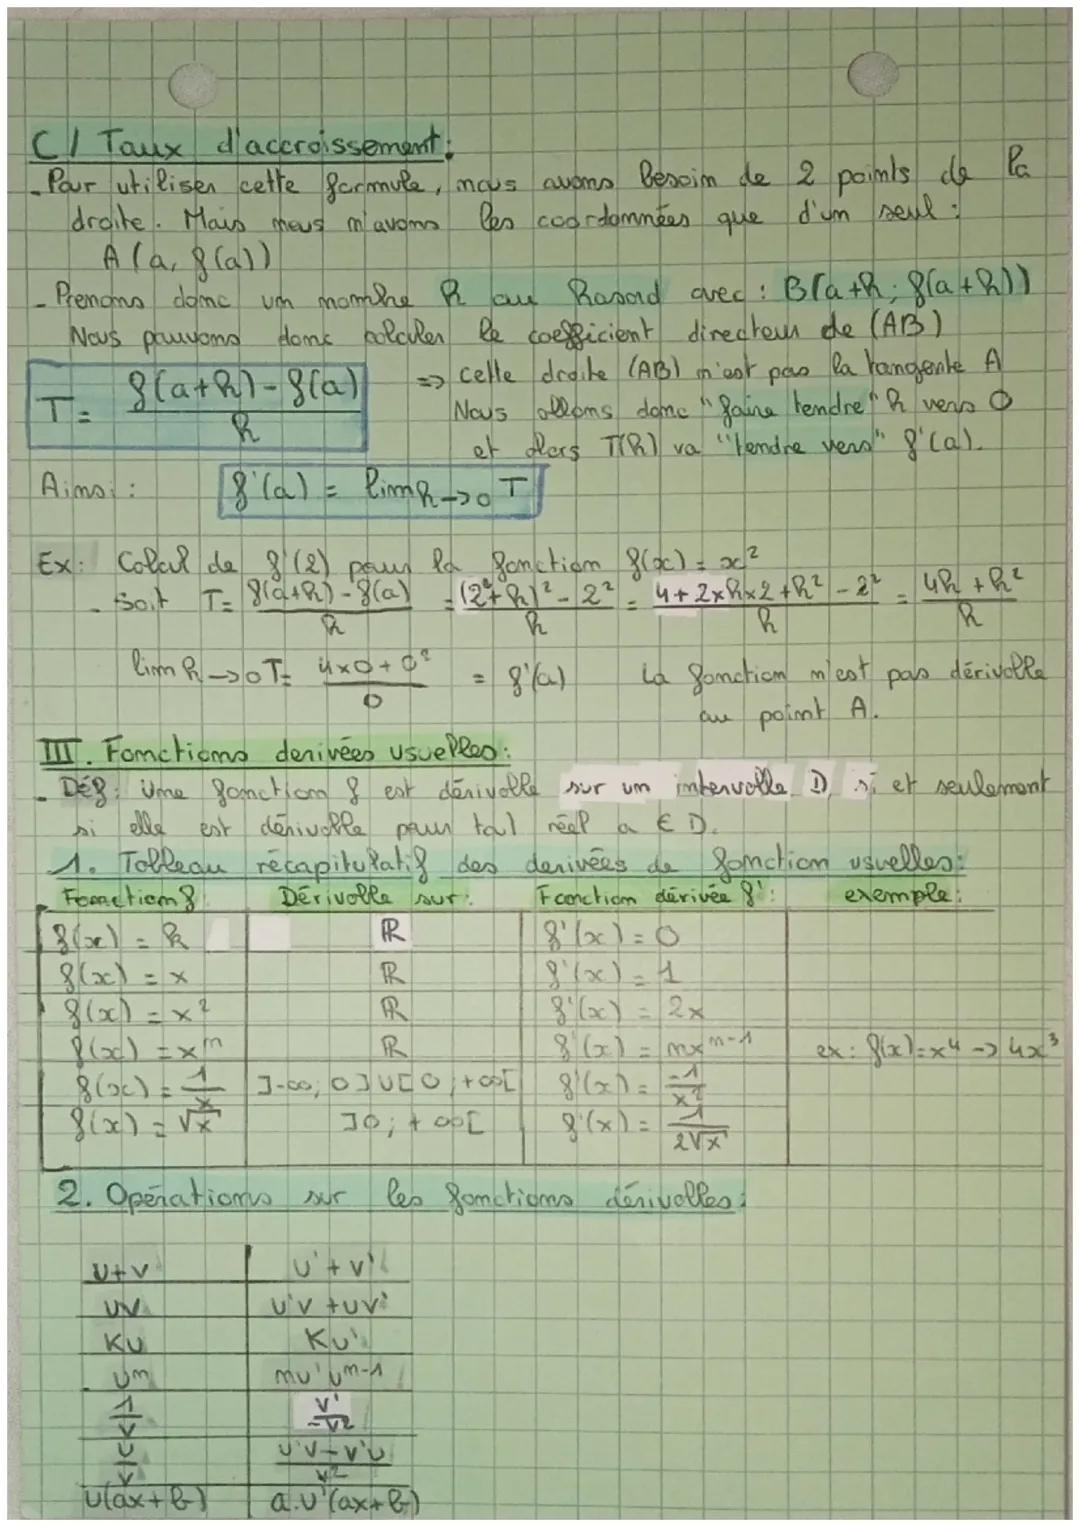 C/ Taux d'accroissement:
- Pour utiliser cette formule, nous avons besoin de 2 points de la
droite. Mais nous n'avons les coordonnées que d'un seul :
A (a, f(a))
- Prenons donc un nombre h au hasard avec : B(a+h; f(a+h))
Nous pouvons donc calculer le coefficient directeur de (AB)
T = f(a+h)-f(a) / h
=> cette droite (AB) n'est pas la tangente A
Nous allons donc "faire tendre" h vers 0
et alors T(h) va "tendre vers" f'(a).
Ainsi : f'(a) = lim h->0 T
Ex: Calcul de f'(2) pour la fonction f(x) = x²
- Soit T = f(a+h)-f(a) / h = (2+h)² - 2² / h = 4+2xhx2+h² - 2² / h = 4h + h² / h
lim h->0 T = 4x0+0² / 0 = f'(a) La fonction n'est pas dérivable
au point A.
III. Fonctions derivées usuelles:
- Déf: Une fonction f est dérivable sur un intervalle D, si et seulement
si elle est dérivable pour tout réel a ∈ D.
1. Tableau récapitulatif des derivées de fonction usuelles:
Fonction f: Dérivable sur: Fonction dérivée f': exemple:
f(x) = k ℝ f'(x) = 0
f(x) = x ℝ f'(x) = 1
f(x) = x² ℝ f'(x) = 2x
f(x) = xⁿ ℝ f'(x) = nxⁿ⁻¹ ex: f(x)=x⁴ -> 4x³
f(x) = 1/x ]-∞; 0]U[0; +∞[ f'(x) = -1/x²
f(x) = √x ]0; +∞[ f'(x) = 1/2√x
2. Opérations sur les fonctions dérivables:
U+V U'+V'
UV U'V + UV'
KU KU'
Uⁿ nU'Uⁿ⁻¹
1/V V'/-V²
U/V U'V-V'U / V²
U(ax+b) a.U'(ax+b)